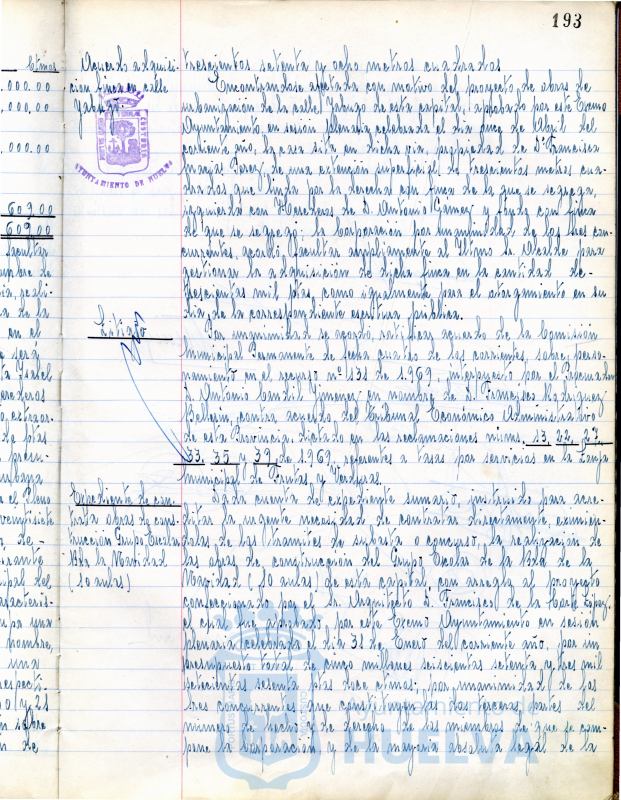 193
Ctmos
.000.00
.000,00
.000.00
603,00
609,00
facultar
en el
ta Ysabel
de ptas
el Pleno
ventisiete
de-
cipal del
nombre,
una
respecti-
y 21
sobre
de
Acuerdo adquisi-
cion finca en calle
Yabugo.
AYUNTAMIENTO DE HUELVA
Litigio
Expediente de con-
trata obras de cons-
trucción Grupo Escolar
Bda la Navidad
(10 aulas)
trescientos setenta y ocho metros cuadrados
Encontrandose afectada con motivo del proyecto de obras de
urbanización de la calle Jabugo de esta capital, aprobado por este Excmo
Ayuntamiento, en sesión plenaria celebrada el dia once de Abril del
corriente año, la casa sita en dicha via, propiedad de Dª Francisca
Macias Perez, de una extensión superficial de trescientos metros cua-
drados que linda por la derecha con finca de la que se segrega,
izquierda con Herederos de D. Antonio Gomez y fondo con finca
de que se segregó; la Corporación por unanimidad de los tres con-
currentes, acordó facultar ampliamente al Iltmo Sr Alcalde para
gestionar la adquisición de dicha finca en la cantidad de-
trescientas mil ptas, como igualmente para el otorgamiento en su
dia de la correspondiente escritura publica.
Por unanimidad se acordó, ratificar acuerdo de la Comisión
Municipal Permanente de fecha cuatro de los corrientes, sobre perso-
namiento en el recurso nº 131 de 1.969, interpuesto por el Procurador
D. Antonio Candil Jimenez en nombre de D. Francisco Rodriguez
Bellerin, contra acuerdo del Tribunal Económico Administrativo
de esta Provincia, dictado en las reclamaciones nums. 13, 22, 23,
33, 35 y 39 de 1.969, referentes a tasas por servicios en la Lonja
Municipal de Frutas y Verduras.
Dada cuenta del expediente sumario, instruido para acre-
ditar la urgente necesidad de contratar directamente, eximien-
dolas de los tramites de subasta o concurso, la realización de
las obras de construcción del Grupo Escolar de la Bda de la
Navidad (10 aulas) de esta capital, con arreglo al proyecto
confeccionado por el Sr Arquitecto D. Francisco de la Corte Lopez,
el cual fue aprobado por este Excmo Ayuntamiento en sesión
plenaria celebrada el dia 31 de Enero del corriente año, por un
presupuesto total de cinco millones seiscientas setenta y tres mil
setecientas sesenta ptas doce ctmos; por unanimidad de los
tres concurrentes que constituyen las dos terceras partes del
numero de hecho y de derecho de los miembros de que se com-
pone la Corporación, y de la mayoria absoluta legal de la
HUELVA